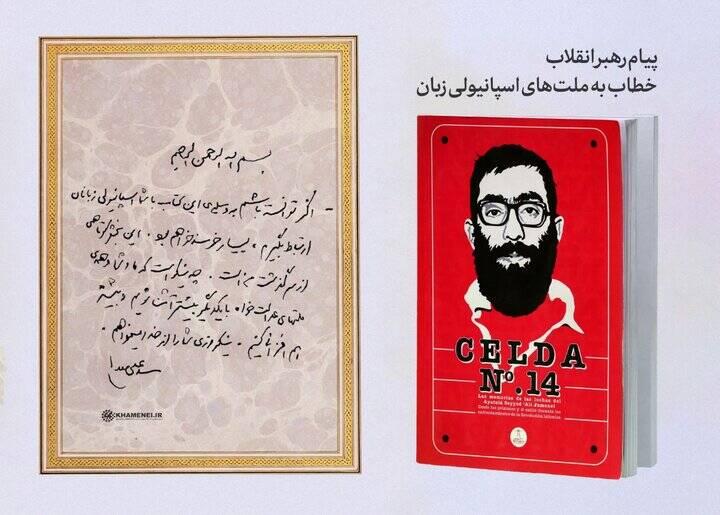 پیام رهبر انقلاب
خطاب به ملت‌های اسپانیولی زبان
بسم الله الرحمن الرحیم
- اگر توانسته باشم به وسیله‌ی این کتاب با شما اسپانیولی زبانان
ارتباط بگیرم، بسیار خرسند خواهم بود. این بخش کوتاهی
از سرگذشت من است. چه نیکو است که ما و شما و همه‌ی
ملتهای عدالت خواه با یکدیگر بیشتر آشنا شویم
هم افزائی کنیم. نیکروزی شما را از خدا میخواهم.
سید علی خامنه‌ای
KHAMENEI.IR
CELDA
Nº.14
Las memorias de las luchas del
Ayatolá Seyyed 'Ali Jamenei
Desde las prisiones y el exilio durante los
enfrentamientos de la Revolución Islámica.